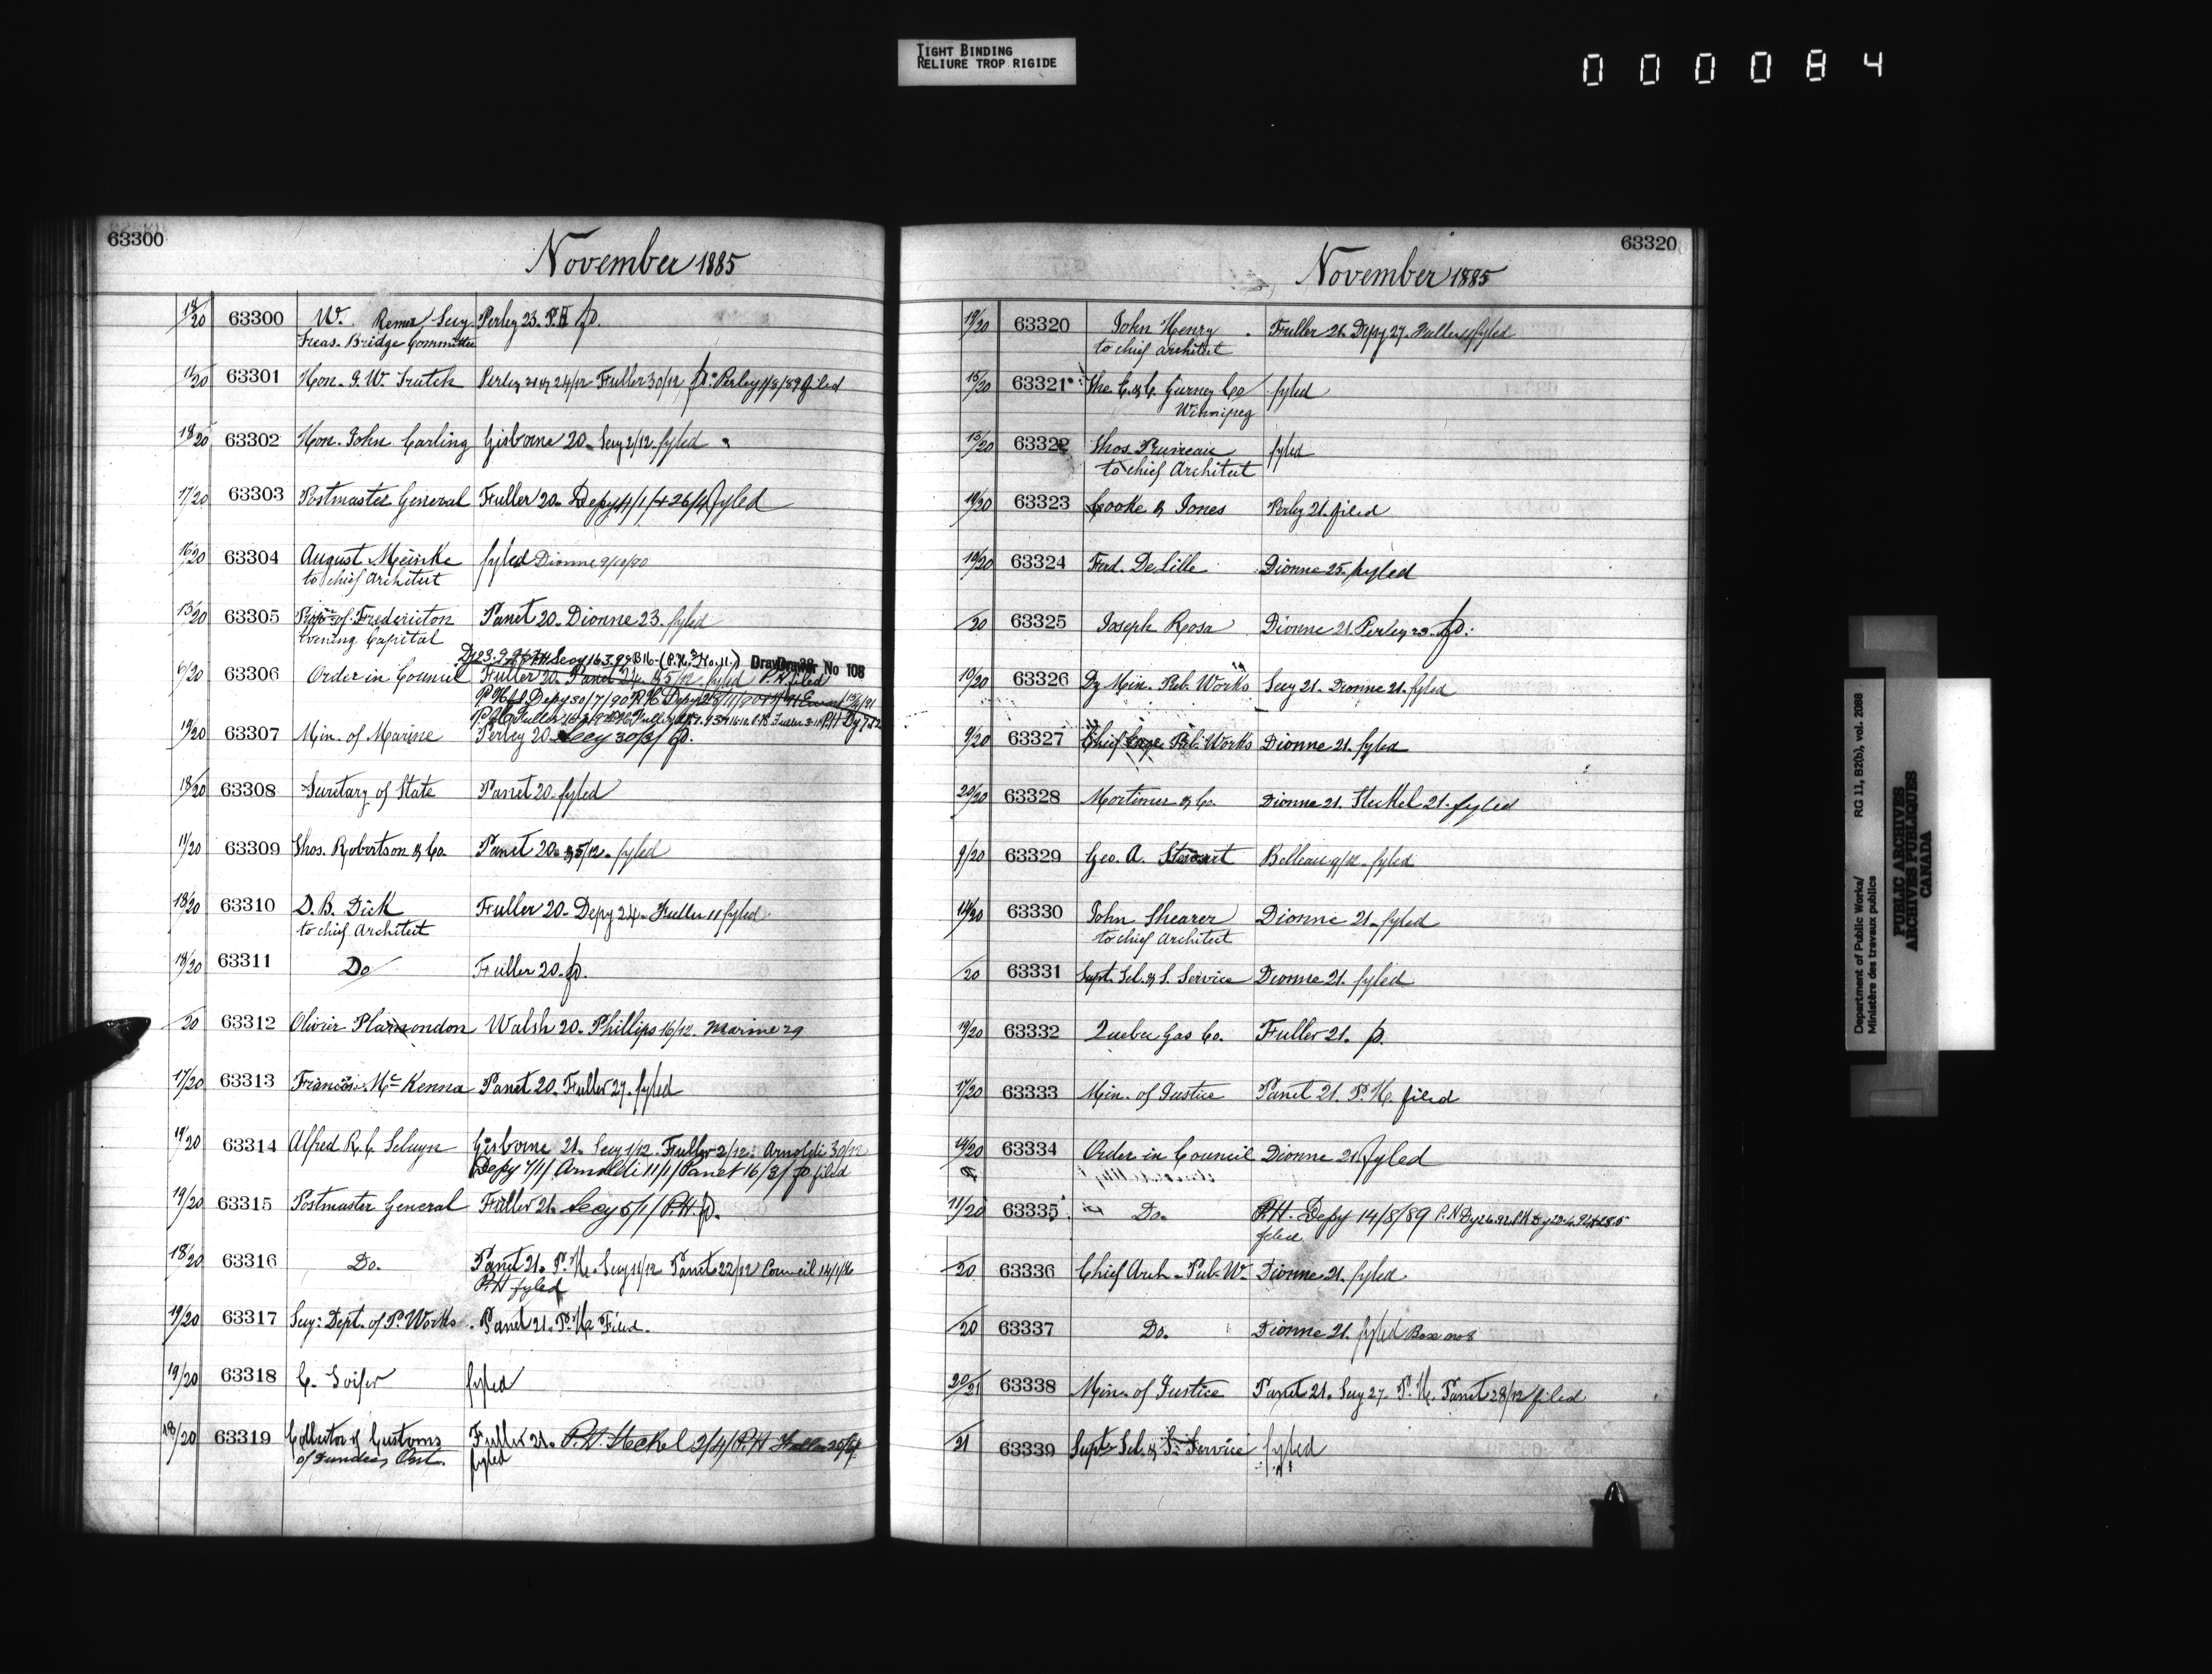 TIGHT BINDING
RELIURE TROP RIGIDE
000084
63300
November 1885
18/20 63300 W. Secy Perley 23. P.H fo.
Treas. Bridge Committee
11/20 63301 Hon. J. W. Trutch Perley 21 24/12 Fuller 30/12 fo. Perley 1/8/89 filed
18/20 63302 Hon. John Carling Gisborne 20. Secy 2/12. fyled
17/20 63303 Postmaster General Fuller 20. Depy 4/1/ + 26/4/ fyled
16/20 63304 August Meinke fyled Dionne 9/10/90
to chief Architect
13/20 63305 of Fredericton Panet 20. Dionne 23. fyled
Evening Capital
Secy 16.3.99 B16- (P.H. No. 11.) Drawer No 108
6/20 63306 Order in Council Fuller 20. Panet 24. fyled P.H filed
Depy 30/7/90 P.H. Depy
19/20 63307 Min. of Marine Perley 20. Secy 30/3/ fo.
18/20 63308 Secretary of State Panet 20. fyled
11/20 63309 Thos. Robertson & Co. Panet 20. & 5/12. fyled
18/20 63310 D. B. Dick Fuller 20. Depy 24. Fuller 11 fyled
to chief Architect
18/20 63311 Do Fuller 20. fo.
/20 63312 Olivier Plamondon Walsh 20. Phillips 16/12. Marine 29
17/20 63313 Francis McKenna Panet 20. Fuller 27. fyled
19/20 63314 Alfred R. C. Selwyn Gisborne 21. Secy 1/12. Fuller 2/12. Arnoldi 30/12
Depy 7/1/ Arnoldi 11/1/ Panet 16/3/ fo filed
19/20 63315 Postmaster General Fuller 21. Secy 5/1/ P.H. fo.
18/20 63316 Do. Panet 21. P.H. Secy 11/12 Panet 22/12 Council 14/1/86
P.H fyled
19/20 63317 Secy: Dept. of P. Works. Panet 21. P.H. Filed.
19/20 63318 C. fyled
18/20 63319 Collector of Customs Fuller 21. P.H. Steckel 2/4/ P.H Fuller 20/4
of Dundee, Ont. fyled
63320
November 1885
19/20 63320 John Henry Fuller 21. Depy 27. Fuller 11 fyled
to chief architect
15/20 63321 The E. & C. Gurney Co fyled
Winnipeg
13/20 63322 Thos. Pruneau fyled
to chief Architect
19/20 63323 Cooke & Jones Perley 21. filed
19/20 63324 Ferd. De Lille Dionne 25. fyled
/20 63325 Joseph Rosa Dionne 21. Perley 23. fo.
10/20 63326 Dy Min. Pub. Works Secy 21. Dionne 21. fyled
9/20 63327 Chief Engr. Pub. Works Dionne 21. fyled
20/20 63328 Mortimer & Co. Dionne 21. Steckel 21. fyled
9/20 63329 Geo. A. Stewart Belleau 9/12. fyled
14/20 63330 John Shearer Dionne 21. fyled
to chief Architect
/20 63331 Supt. Tel. & S. Service Dionne 21. fyled
19/20 63332 Quebec Gas Co. Fuller 21. fo.
17/20 63333 Min. of Justice Panet 21. P.H. filed
14/20 63334 Order in Council Dionne 21. fyled
11/20 63335 Do. P.H. Depy 14/8/89
filed
/20 63336 Chief Arch. Pub. W. Dionne 21. fyled
/20 63337 Do. Dionne 21. fyled Box no 8
20/21 63338 Min. of Justice Panet 21. Secy 27. P.H. Panet 28/12 filed
/21 63339 Supt. Tel. & S. Service fyled
Department of Public Works/ RG 11, B2(b), vol. 2088
Ministère des travaux publics
PUBLIC ARCHIVES
ARCHIVES PUBLIQUES
CANADA